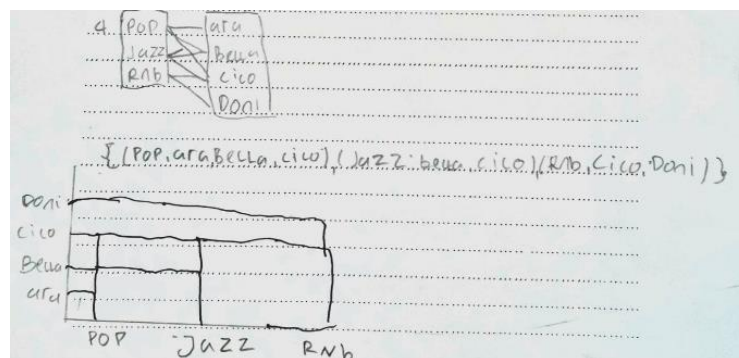 4. POP ara
Jazz Bella
RNb Cico
Doni
{(POP, ara, Bella, cico), (Jazz: bella, cico)(RNb, Cico, Doni)}
Doni
Cico
Bella
ara
POP JAZZ RNb